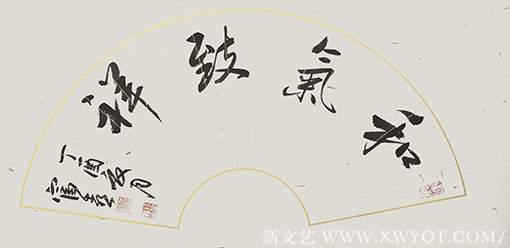 和氣致祥
丁酉
新文艺 WWW.XWYQT.COM/